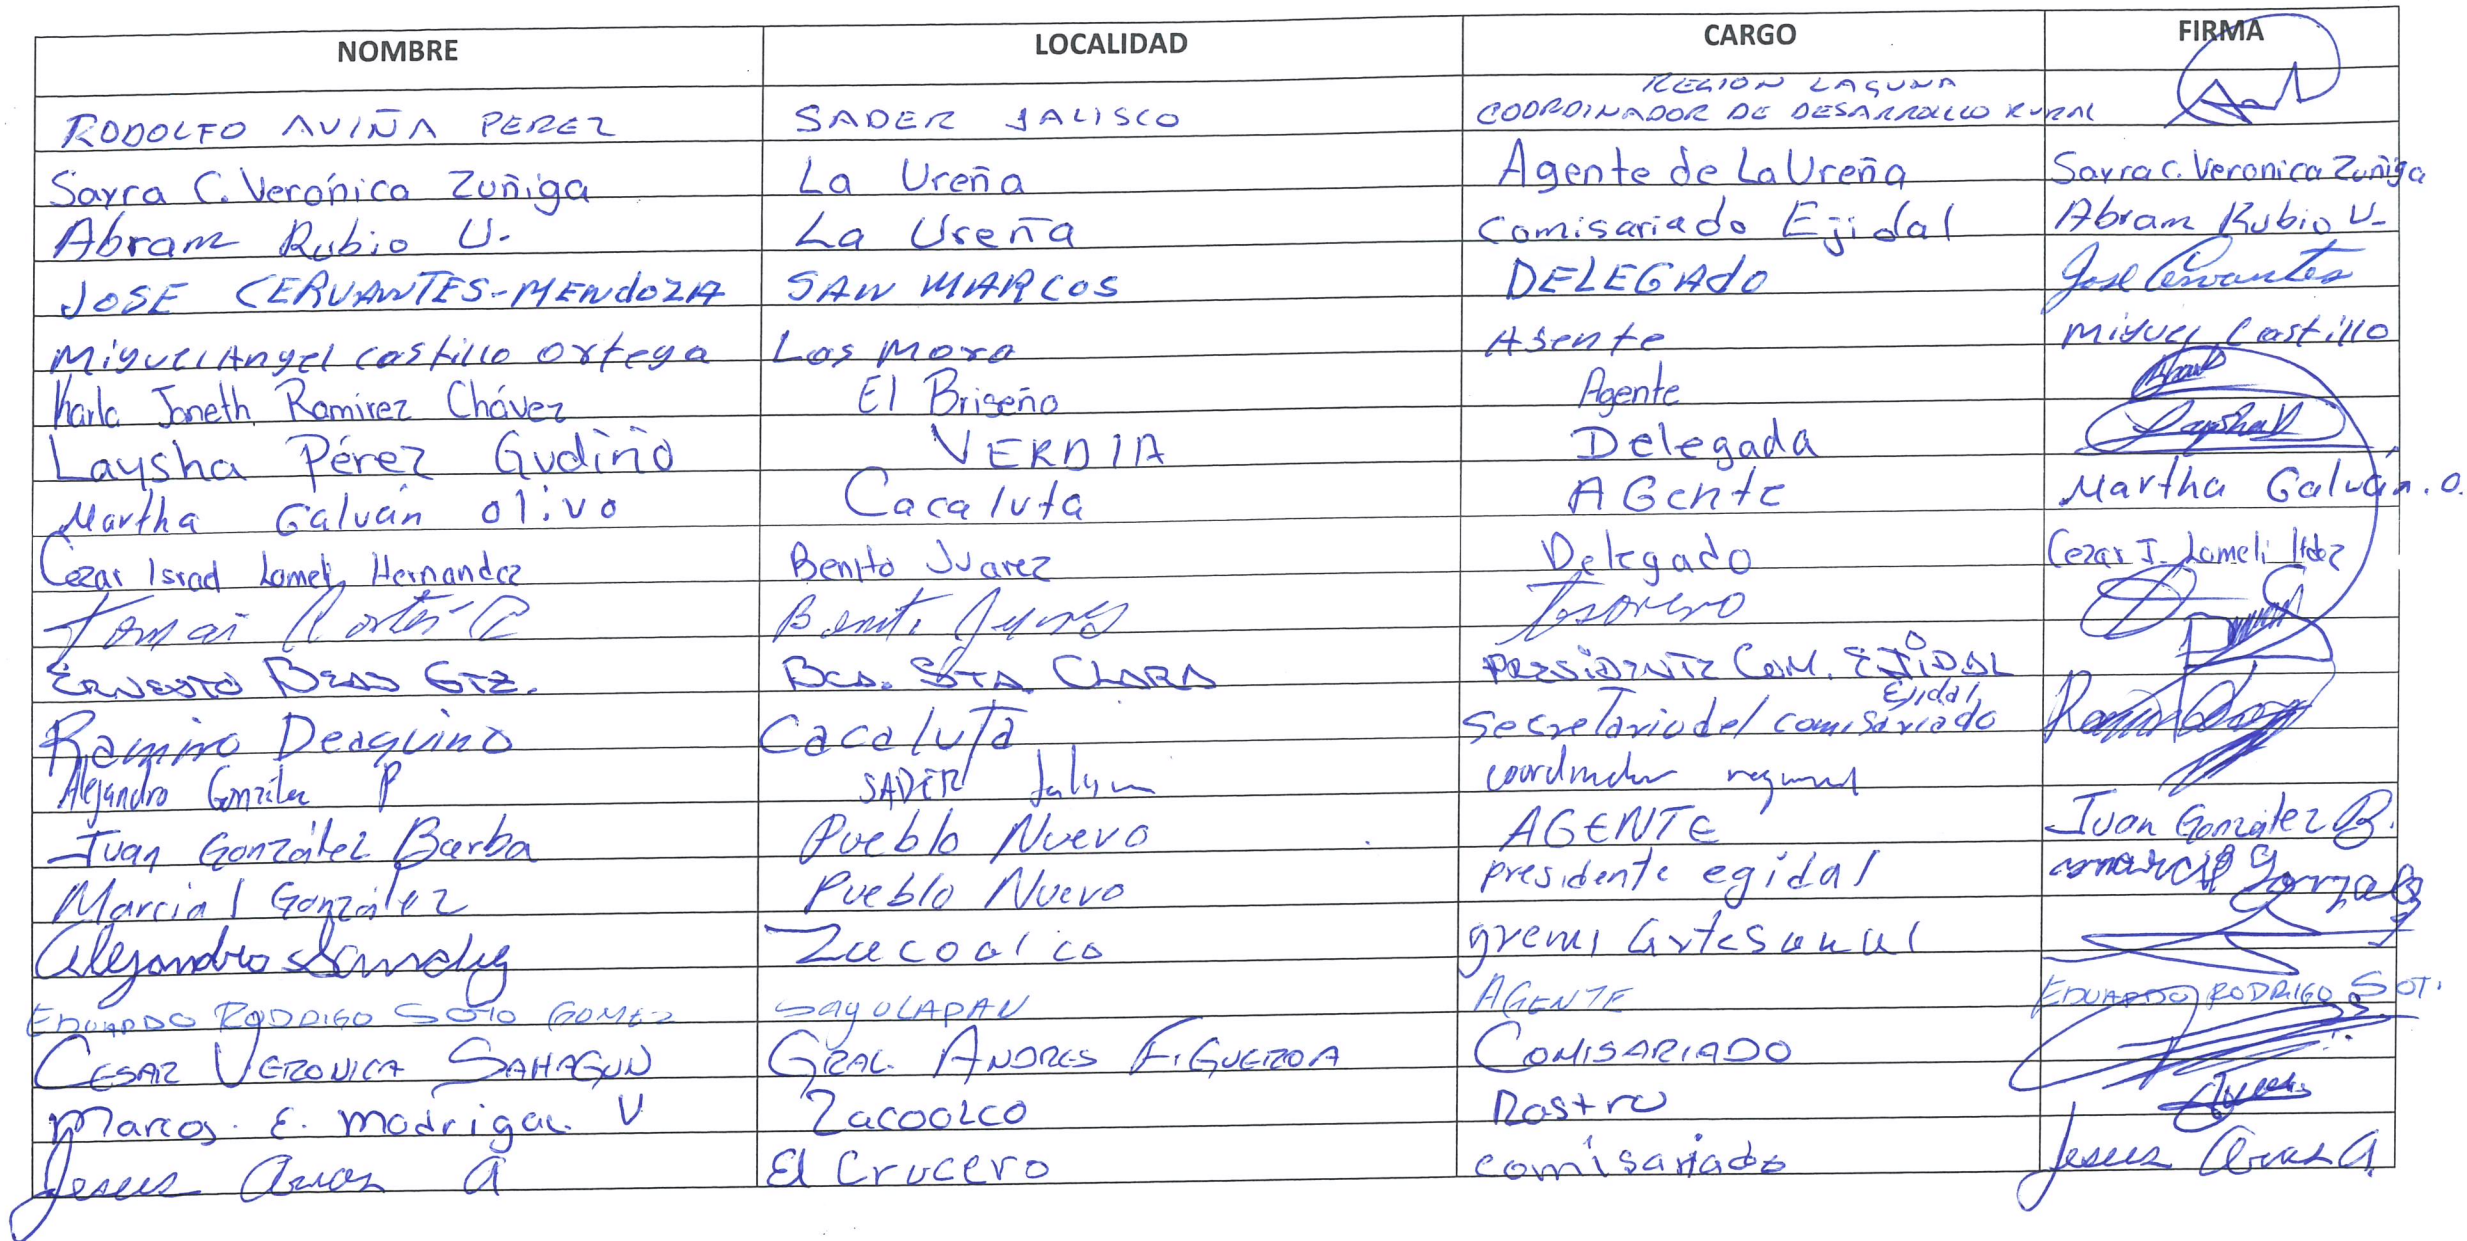 NOMBRE LOCALIDAD CARGO FIRMA
RODOLFO AVIÑA PEREZ SADER JALISCO REGION LAGUNA
COORDINADOR DE DESARROLLO RURAL
Sayra C. Verónica Zuñiga La Ureña Agente de La Ureña Sayra C. Veronica Zuñiga
Abram Rubio U. La Ureña Comisariado Ejidal Abram Rubio U.
JOSE CERVANTES-MENDOZA SAN MARCOS DELEGADO Jose Cervantes
Miguel Angel Castillo Ortega Las Mora Agente Miguel Castillo
Karla Janeth Ramirez Chávez El Briseño Agente
Laysha Pérez Gudiño VERDIA Delegada
Martha Galván Olivo Cacaluta AGente Martha Galván. O.
Cezar Israel Lomeli Hernandez Benito Juarez Delegado Cezar I. Lomeli Hdez
Tomas Cortés Benito Juarez Tesorero
ERNESTO GTZ. BCA. STA. CLARA PRESIDENTE COM. EJIDAL
Ramiro Deaquino Cacaluta Secretario del comisariado Ejidal
Alejandro González P SADER Jalisco coordinador regional
Juan González Barba Pueblo Nuevo AGENTE Juan González B.
Marcial González Pueblo Nuevo presidente egidal Marcial Gonzalez
Alejandro Sanchez Zacoalco gremi Artesanal
EDUARDO RODRIGO SOTO GOMEZ SAyOLAPAN AGENTE EDUARDO RODRIGO SOT.
CESAR VERONICA SAHAGUN GRAL. ANDRES FIGUEROA COMISARIADO
Marcos. E. Madrigal V Zacoalco Rastro
Jesus Arias A El Crucero comisariado Jesus Arias A.